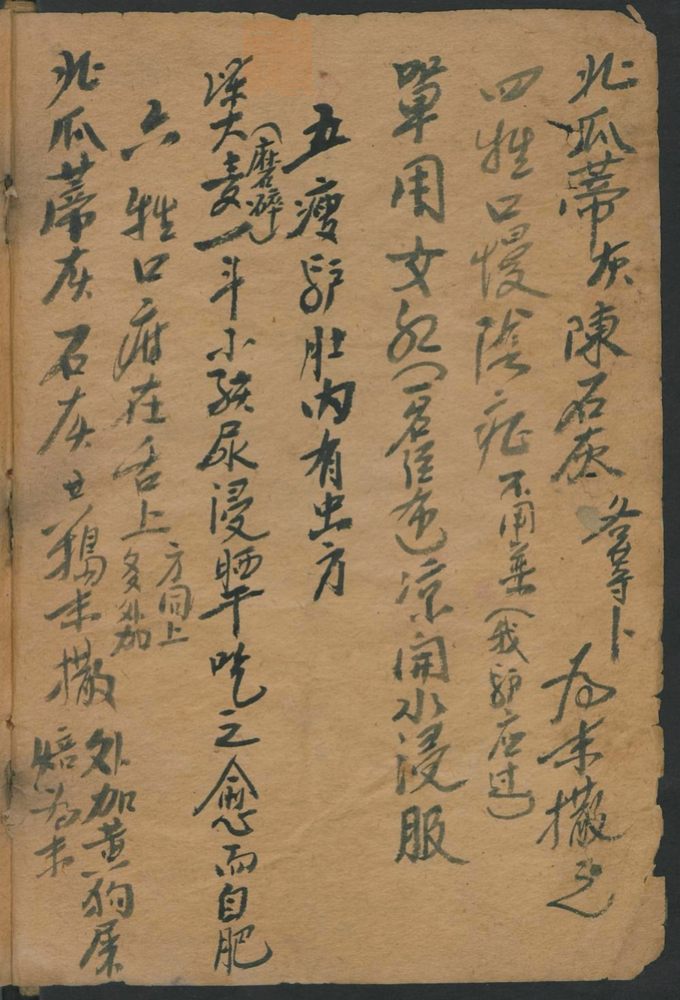 北瓜蒂灰陳石灰各等卜為末撒之
四牲口慢陰症不用薬（我驴应过）
單用女 （一名 ）凉開水浸服
五瘦驴肚内有虫方
大麦（磨碎）一斗小孩尿浸晒干吃之愈而自肥
六牲口 在舌上方同上多外加
北瓜蒂灰石灰 末撒外加黄狗屎焙為末